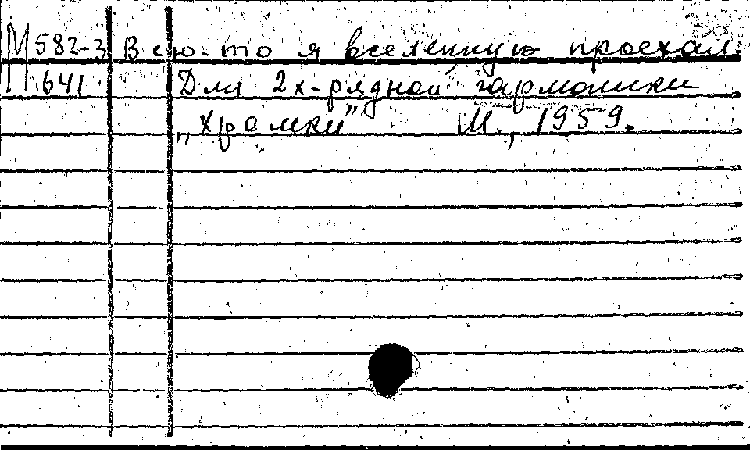 М 582-3 Всю-то я вселенную проехал.
641 Для 2х-рядной гармоники
„хромки" М., 1959.